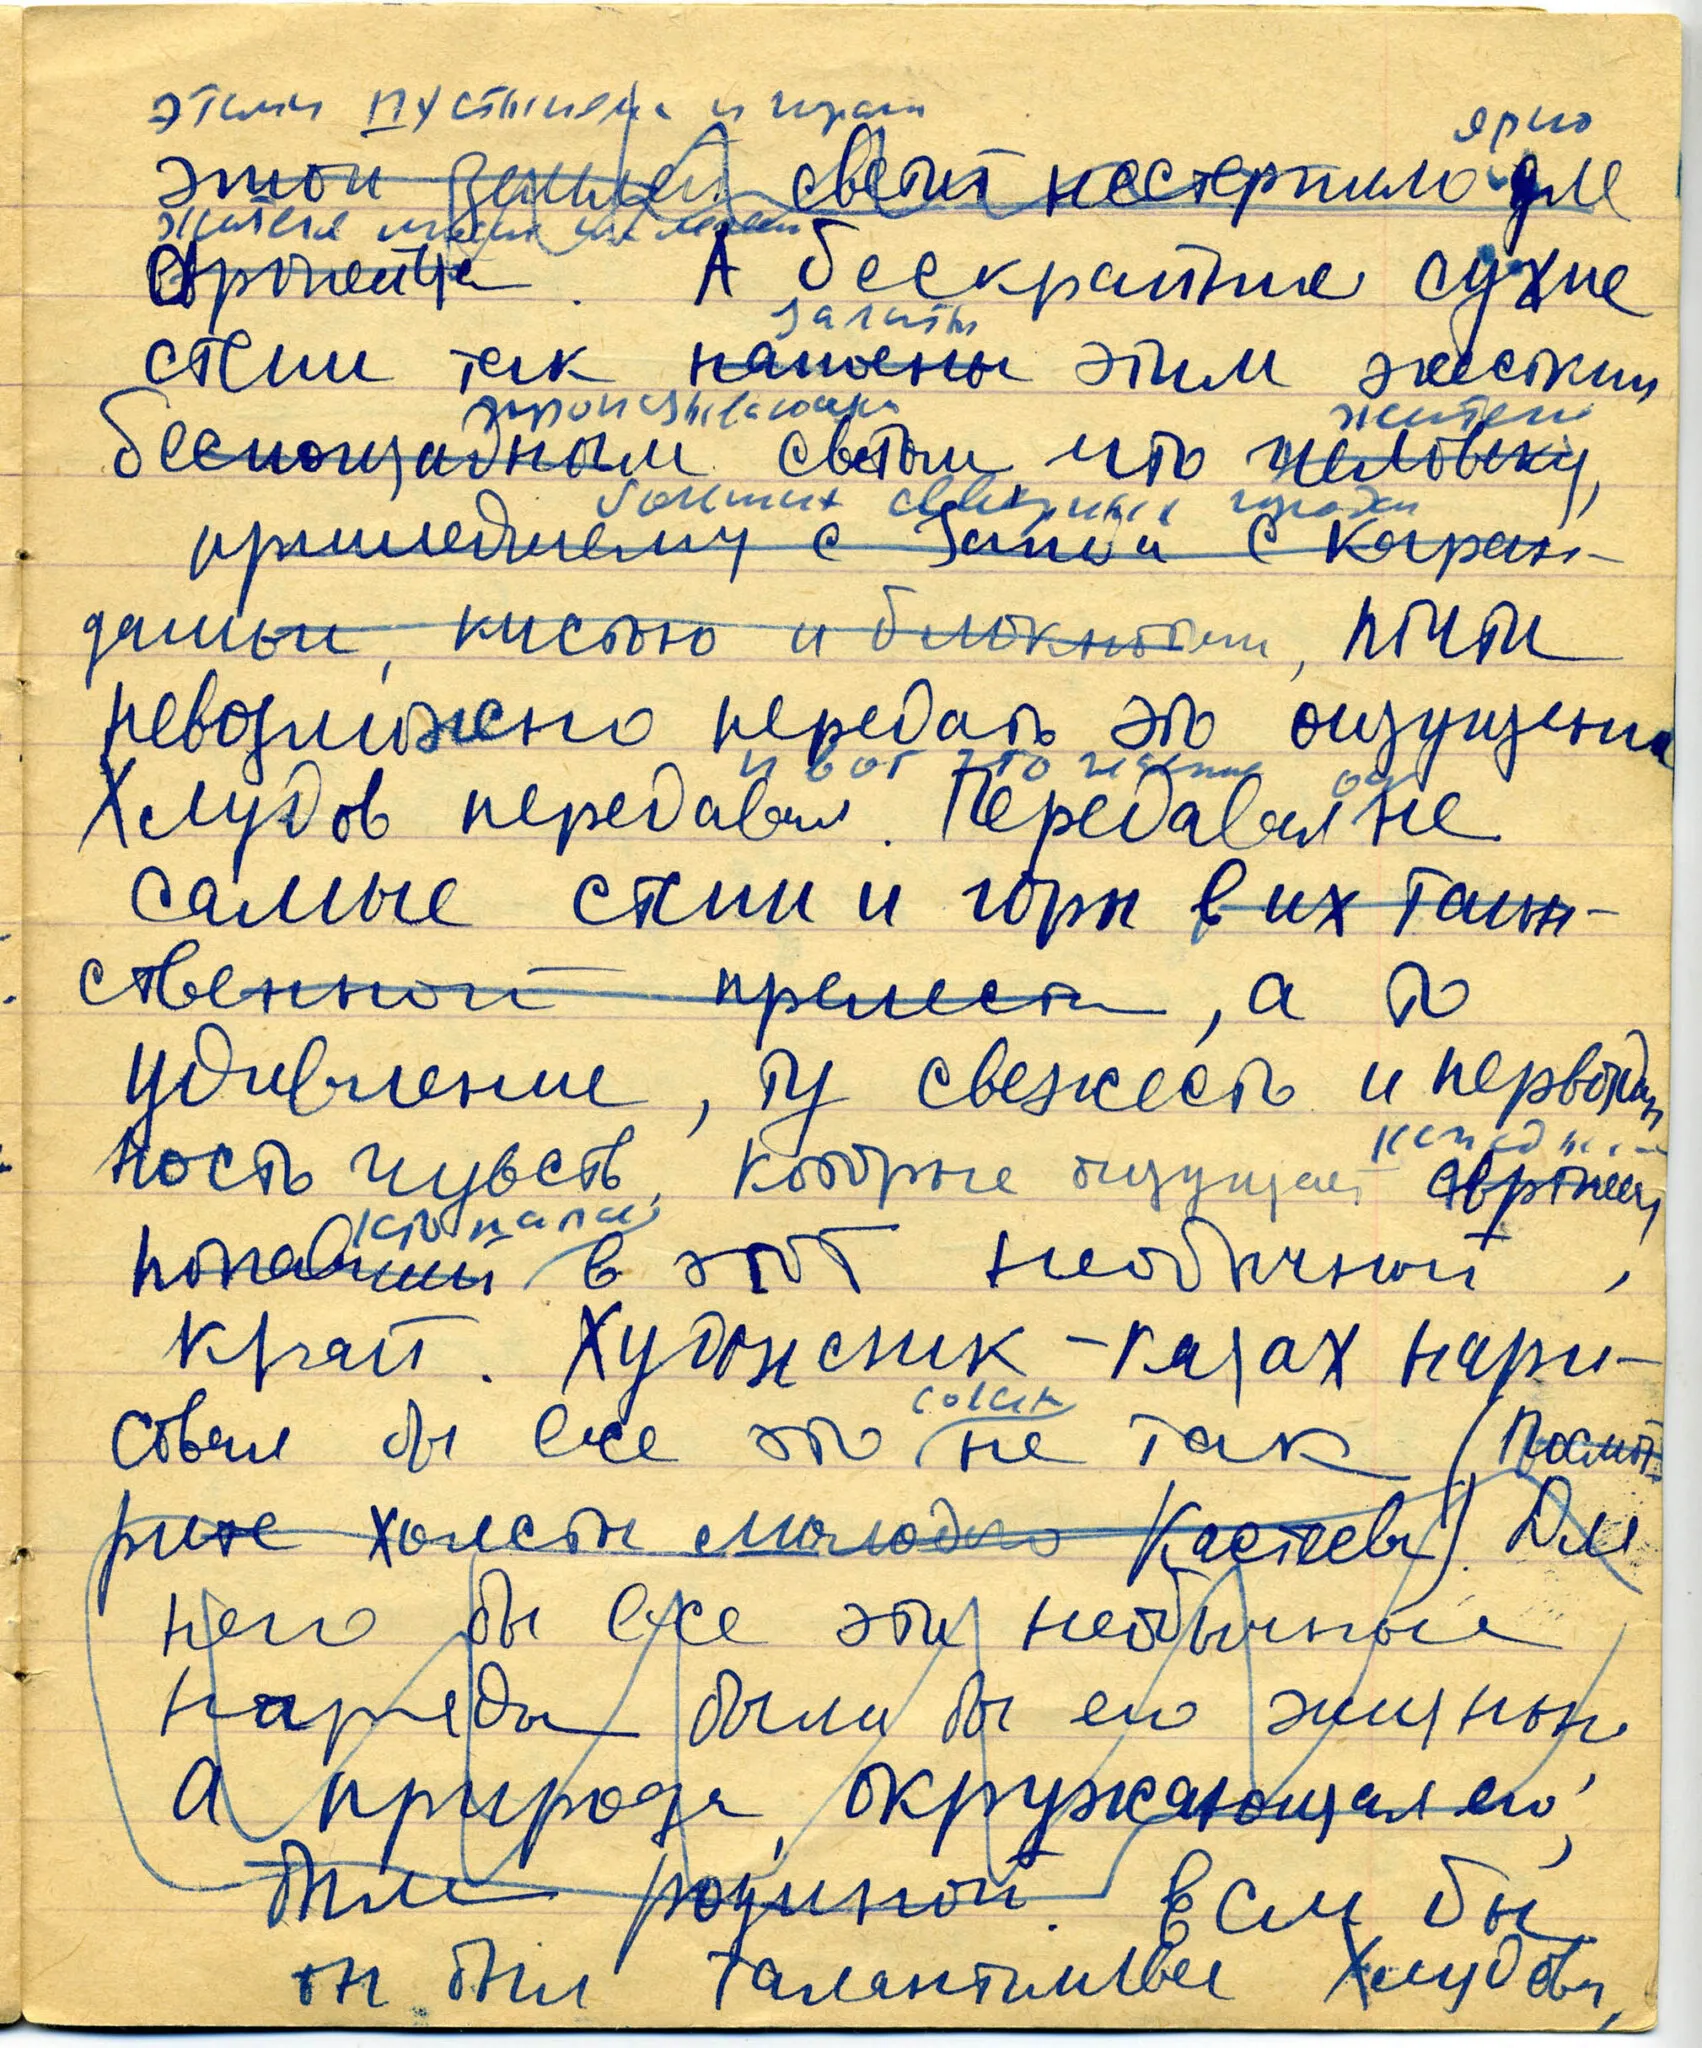 этими пустынями и горами
ярко
этой землей светит нестерпимо для
жителя
европейца. А бескрайние сухие
залиты
степи так напоены этим жестким
пронизывающим жителю
беспощадным светом что человеку,
больших северных городов
пришедшему с Запада с каран-
дашом, кистью и блокнотом, почти
невозможно передать это ощущение
и вот это он
Хлудов передавал. Передавал не
самые степи и горы в их таин-
ственной прелести, а то
удивление, ту свежесть и первоздан
ность чувств, которые ощущает европеец
каждый
кто попал
попавший в этот необычный
край. Художник-казах нари-
совсем
совал бы все это не так (Посмот-
рите холсты молодого Кастеева). Для
него бы все эти необычные
наряды были бы его жизнью
а природа, окружающая его,
была родиной. Если бы
он был талантливее Хлудова,